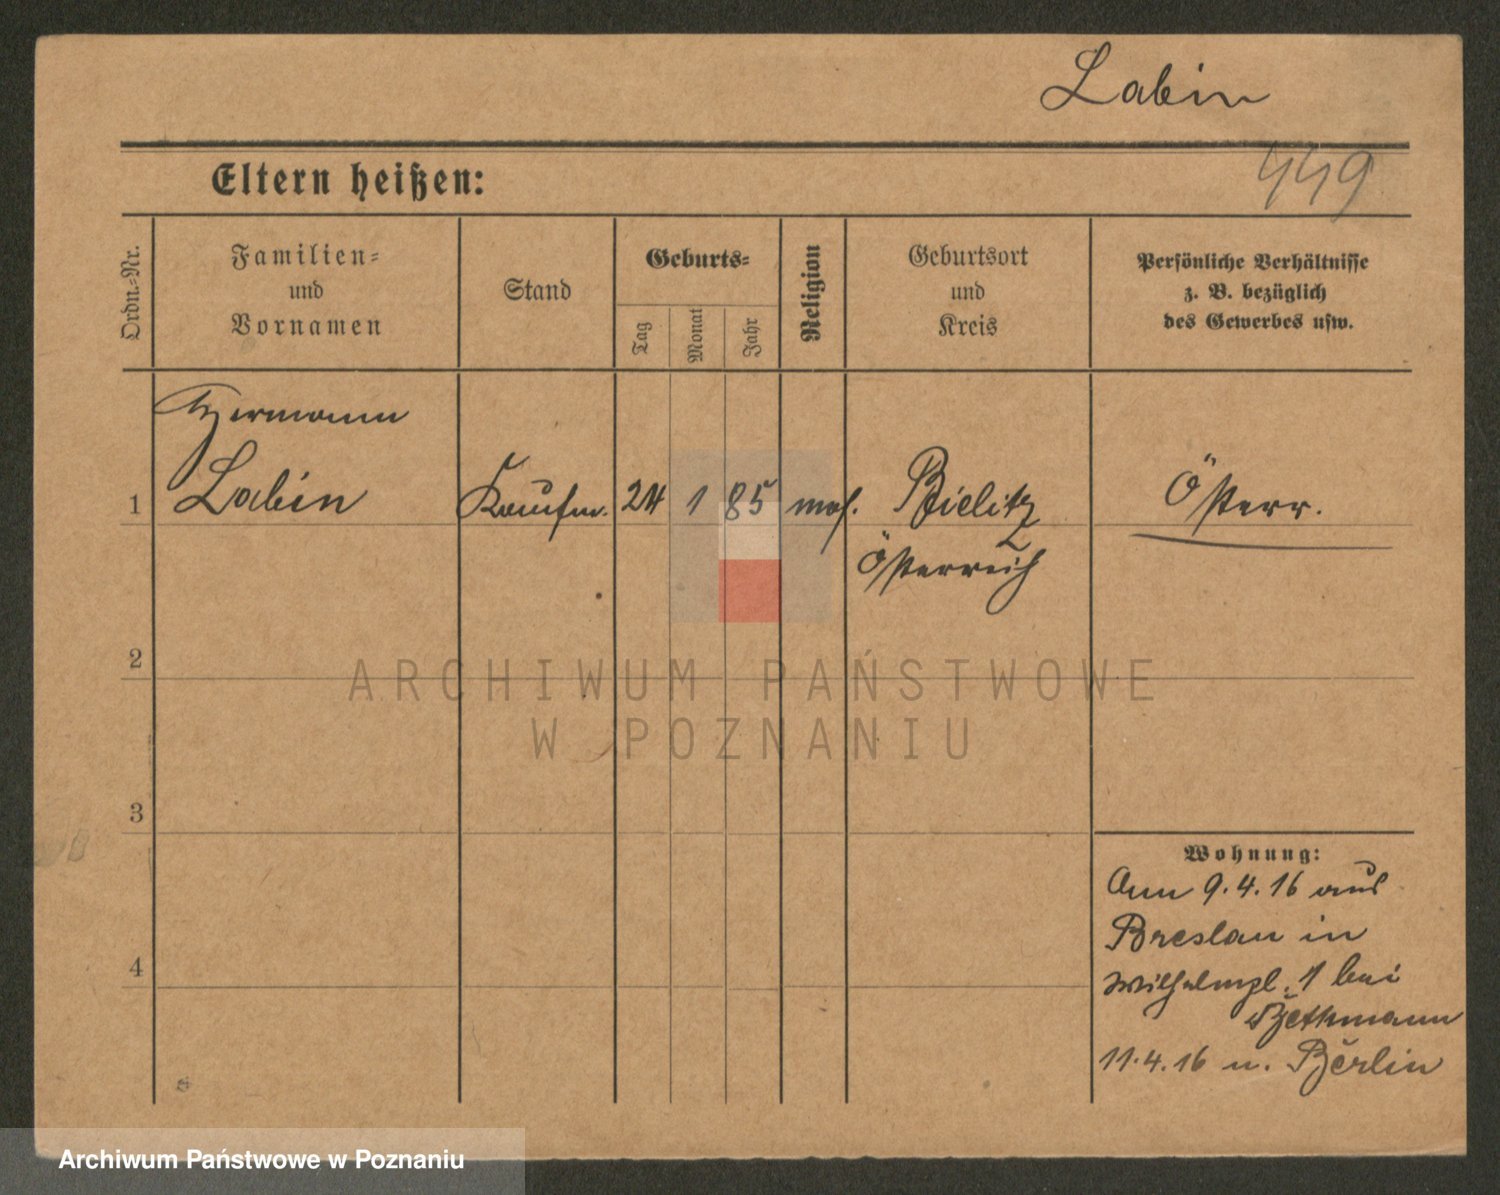 Labin
449
Eltern heißen:
Ordn.-Nr.
Familien-
und
Vornamen
Stand
Geburts-
Tag
Monat
Jahr
Religion
Geburtsort
und
Kreis
Persönliche Verhältnisse
z. B. bezüglich
des Gewerbes usw.
Hermann
1 Labin Kaufm. 24 1 85 mos. Bielitz Österr.
Österreich
2
ARCHIWUM PAŃSTWOWE
W POZNANIU
3
Wohnung:
9.4.16 aus
Breslau in
4
Wilhelmpl. 1 bei
11.4.16 n. Berlin
Archiwum Państwowe w Poznaniu